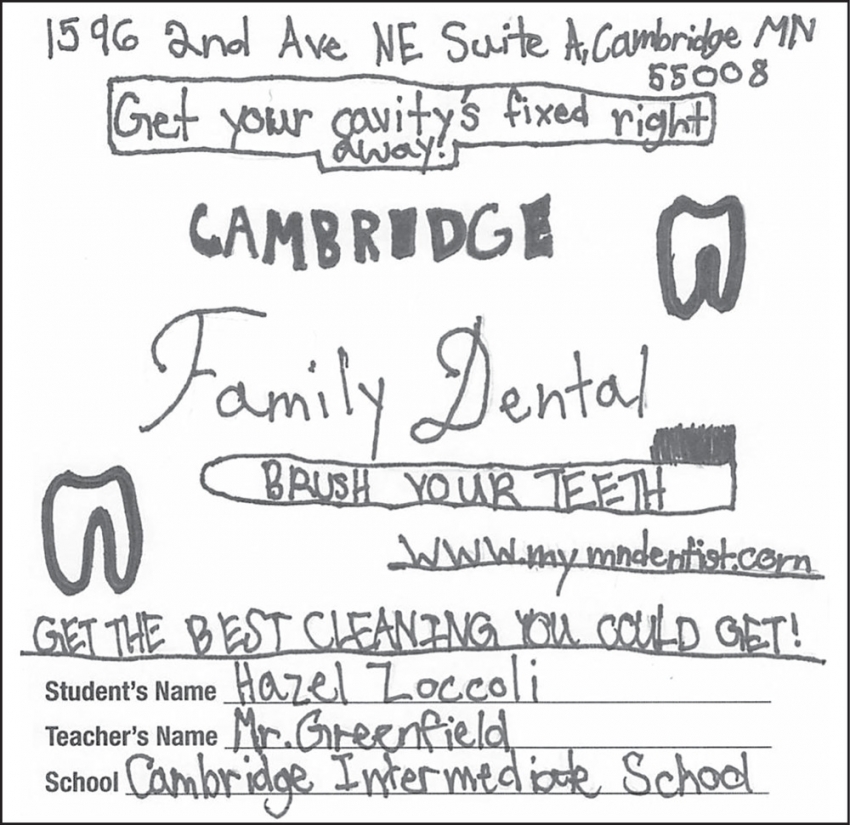 1596 2nd Ave NE Suite A, Cambridge MN
55008
Get your cavity's fixed right
away!
CAMBRIDGE
Family Dental
BRUSH YOUR TEETH
www.mymndentist.com
GET THE BEST CLEANING YOU COULD GET!
Student's Name Hazel Zoccoli
Teacher's Name Mr. Greenfield
School Cambridge Intermediate School